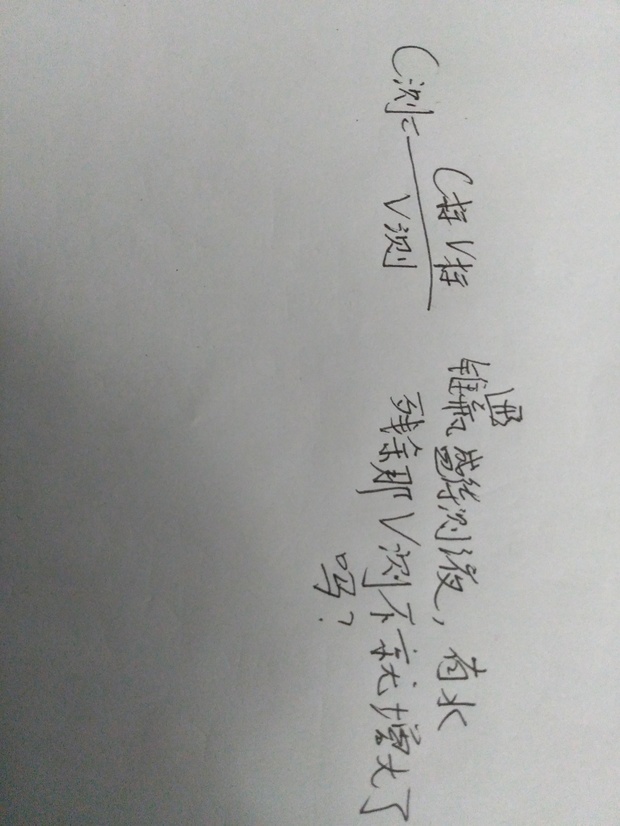 C测=
C标V标
V测
锥形瓶盛待测液，有水
残余那V测不就增大了
吗？